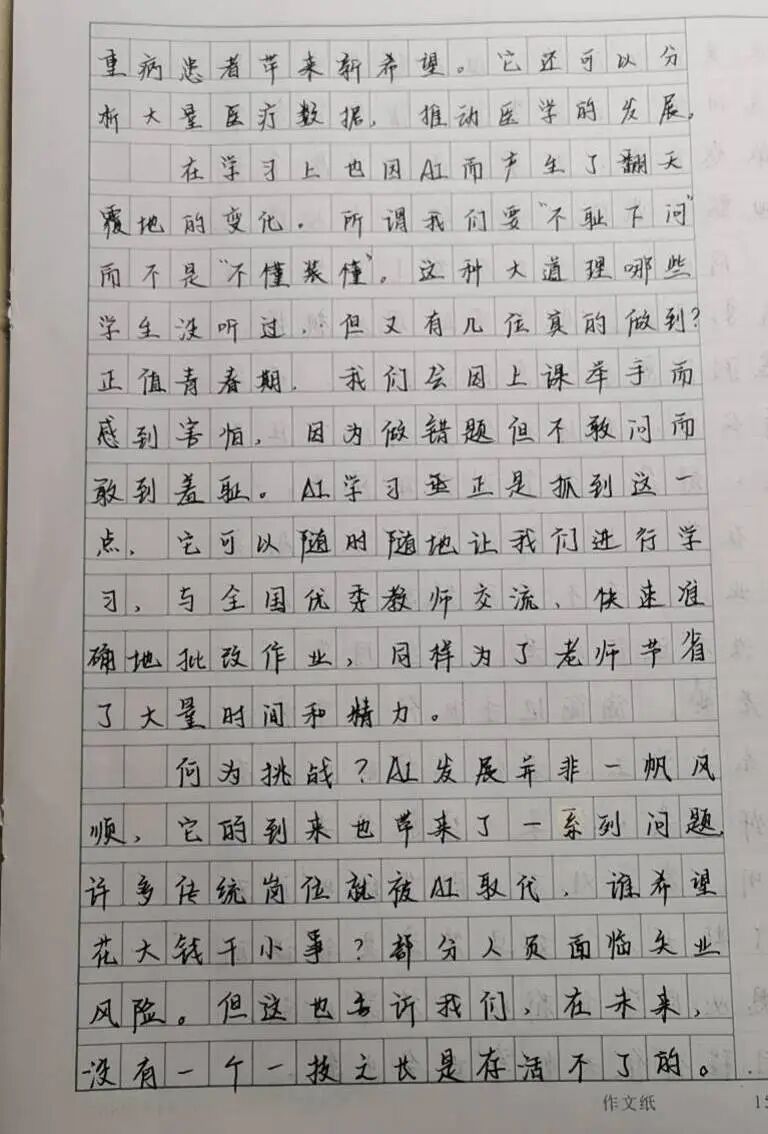 重病患者带来新希望。它还可以分
析大量医疗数据，推动医学的发展。
在学习上也因AI而产生了翻天
覆地的变化。所谓我们要“不耻下问”
而不是“不懂装懂”。这种大道理哪些
学生没听过，但又有几位真的做到？
正值青春期，我们会因上课举手而
感到害怕，因为做错题但不敢问而
敢到羞耻。AI学习正是抓到这一
点，它可以随时随地让我们进行学
习，与全国优秀教师交流，快速准
确地批改作业，同样为了老师节省
了大量时间和精力。
何为挑战？AI发展并非一帆风
顺，它的到来也带来了一系列问题，
许多传统岗位就被AI取代，谁希望
花大钱干小事？部分人员面临失业
风险。但这也告诉我们，在未来，
没有一个一技之长是存活不了的。
作文纸